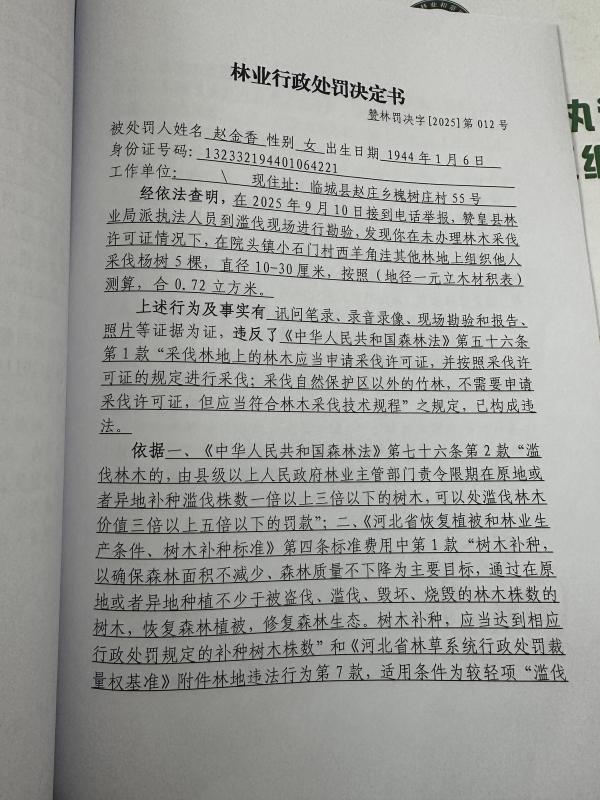 林业行政处罚决定书
赞林罚决字[2025]第 012 号
被处罚人姓名 赵金香 性别 女 出生日期 1944 年 1 月 6 日
身份证号码：132332194401064221
工作单位： \ 现住址：临城县赵庄乡槐树庄村 55 号
经依法查明，在 2025 年 9 月 10 日接到电话举报，赞皇县林
业局派执法人员到滥伐现场进行勘验，发现你在未办理林木采伐
许可证情况下，在院头镇小石门村西羊角洼其他林地上组织他人
采伐杨树 5 棵，直径 10-30 厘米，按照（地径一元立木材积表）
测算，合 0.72 立方米。
上述行为及事实有 讯问笔录、录音录像、现场勘验和报告、
照片等证据为证，违反了《中华人民共和国森林法》第五十六条
第 1 款“采伐林地上的林木应当申请采伐许可证，并按照采伐许
可证的规定进行采伐；采伐自然保护区以外的竹林，不需要申请
采伐许可证，但应当符合林木采伐技术规程”之规定，已构成违
法。
依据一、《中华人民共和国森林法》第七十六条第 2 款“滥
伐林木的，由县级以上人民政府林业主管部门责令限期在原地或
者异地补种滥伐株数一倍以上三倍以下的树木，可以处滥伐林木
价值三倍以上五倍以下的罚款”；二、《河北省恢复植被和林业生
产条件、树木补种标准》第四条标准费用中第 1 款“树木补种，
以确保森林面积不减少、森林质量不下降为主要目标，通过在原
地或者异地种植不少于被盗伐、滥伐、毁坏、烧毁的林木株数的
树木，恢复森林植被，修复森林生态。树木补种，应当达到相应
行政处罚规定的补种树木株数”和《河北省林草系统行政处罚裁
量权基准》附件林地违法行为第 7 款，适用条件为较轻项“滥伐